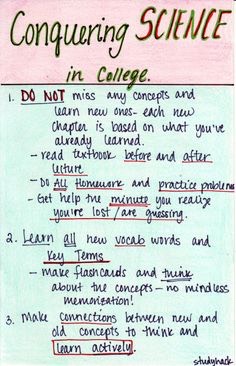 Conquering SCIENCE
in College.
1. DO NOT miss any concepts and
learn new ones - each new
chapter is based on what you've
already learned.
- read textbook before and after
lecture
- Do All Homework and practice problems
- Get help the minute you realize
you're lost / are guessing.
2. Learn all new vocab words and
Key Terms
- make flashcards and think
about the concepts - no mindless
memorization!
3. Make connections between new and
old concepts to think and
learn actively.
studyhack